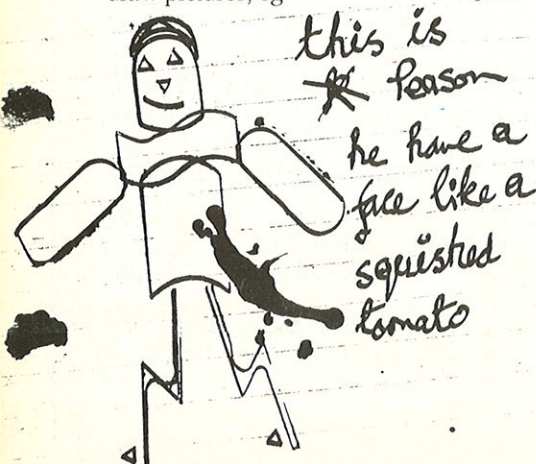 this is
Peason
he have a
face like a
squished
tomato